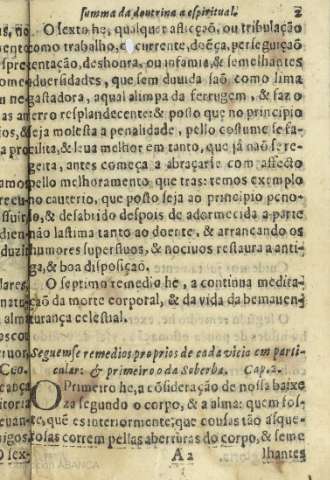 summa da doutrina a espiritual. 2
O sexto he, qualquer aflicção, ou tribulação
como trabalho, e currente, doẽça, perseguiçaõ
tentação, deshonra, ou infamia, & semelhantes
adversidades, que sem duvida saõ como lima
gastadora, aqual alimpa da ferrugem, & faz o
ferro resplandecente: & posto que no principio
seja molesta a penalidade, pello costume se fa-
cilita, & leua melhor em tanto, que já naõ se re-
geita, antes começa a abraçarse com affecto
pello melhoramento que tras: temos exemplo
no cauterio, que posto seja ao principio peno-
so, & desabrido despois de adormecida a parte
não lastima tanto ao doente, & arrancando os
humores superfluos, & nocivos restaura a anti-
ga, & boa disposiçaõ.
O septimo remedio he, a continua medita-
ção da morte corporal, & da vida da bemauen-
turança celestial.
Seguemse remedios proprios de cada vicio em parti-
cular: & primeiro o da Soberba. Cap. 2.
O Primeiro he, a cõsideração de nossa baixe
za segundo o corpo, & a alma: quem fos-
te, què es interiormente, que cousas tão asque-
rosas correm pellas aberturas do corpo, & seme
A 2 lhantes
ABANCA